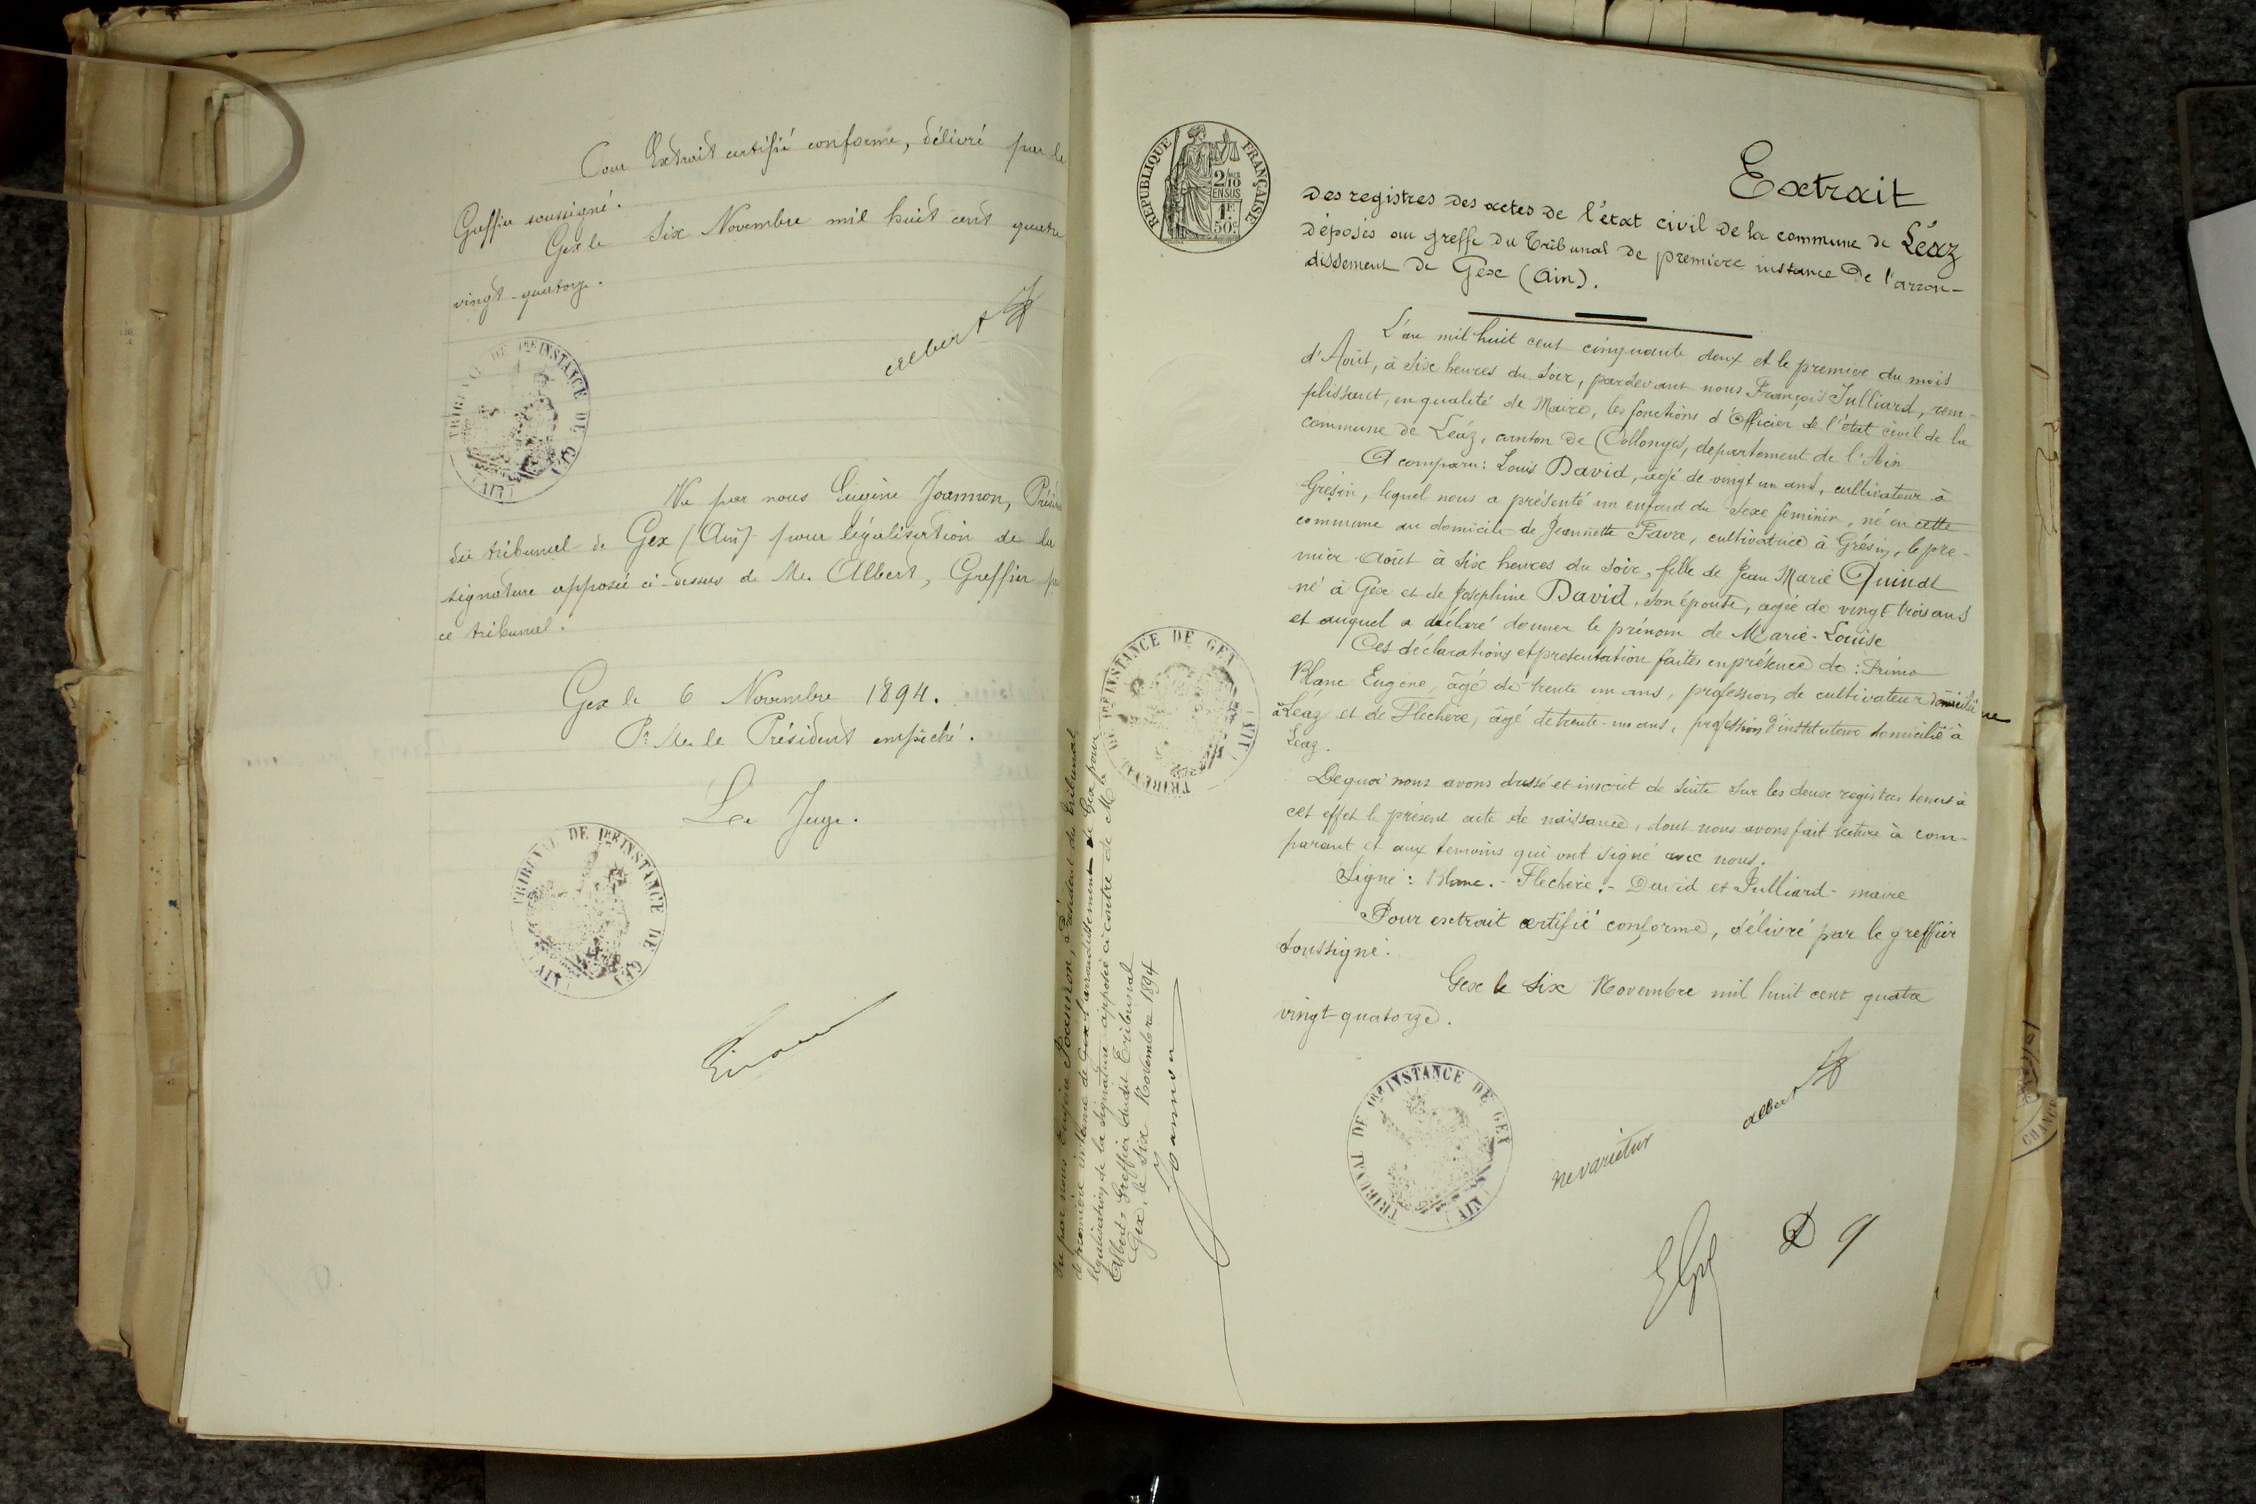 Pour Extrait certifié conforme, délivré par le
Greffier soussigné.
Gex le Six Novembre mil huit cent quatre
vingt-quatorze.
Albert
TRIBUNAL DE 1RE INSTANCE DE GEX (AIN)
Vu par nous Eugène Joannon, Présid
du tribunal de Gex (Ain) pour légalisation de la
signature apposée ci-dessus de Me. Albert, Greffier
ce tribunal.
Gex le 6 Novembre 1894.
Pr. Mr. le Président empêché.
Le Juge.
TRIBUNAL DE 1RE INSTANCE DE GEX (AIN)
RÉPUBLIQUE FRANÇAISE
2/10
EN SUS
1F
50c
Extrait
des registres des actes de l'état civil de la commune de Léaz
déposés au greffe du Tribunal de première instance de l'arron-
dissement de Gex (Ain).
L'an mil huit cent cinquante deux et le premier du mois
d'Août, à Six heures du soir, pardevant nous François Julliard, rem-
plissant, en qualité de Maire, les fonctions d'Officier de l'état civil de la
commune de Léaz, canton de Collonges, département de l'Ain
A comparu: Louis David, âgé de vingt un ans, cultivateur à
Grésin, lequel nous a présenté un enfant du Sexe feminin, né en cette
commune au domicile de Jeannette Favre, cultivatrice à Grésin, le pre-
mier Août à Six heures du Soir, fille de Jean Marie Quindt
né à Gex et de Josephine David, son épouse, agée de vingt trois ans
et auquel a déclaré donner le prénom de Marie-Louise
Ces déclarations et presentation faites en présence de: Primo
Blanc Eugène, âgé de trente un ans, profession de cultivateur domicilié
à Léaz et de Flechere, âgé de trente-un ans, profession d'instituteur domicilié à
Léaz.
De quoi nous avons dressé et inscrit de suite sur les deux registres tenus à
cet effet le présent acte de naissance, dont nous avons fait lecture à com-
parant et aux temoins qui ont signé avec nous.
Signé: Blanc.- Flechère.- David et Julliard - maire
Pour extrait certifié conforme, délivré par le greffier
soussigné.
Gex le six Novembre mil huit cent quatre
vingt quatorze.
Albert
TRIBUNAL DE 1RE INSTANCE DE GEX (AIN)
ne varietur
D 9
TRIBUNAL DE 1RE INSTANCE DE GEX (AIN)
Vu par nous Eugène Joannon, Président du Tribunal
de première instance de l'arrondissement de Gex pour
légalisation de la signature apposée ci-contre de Me
Albert Greffier dudit Tribunal
Gex, le Six Novembre 1894
Joannon